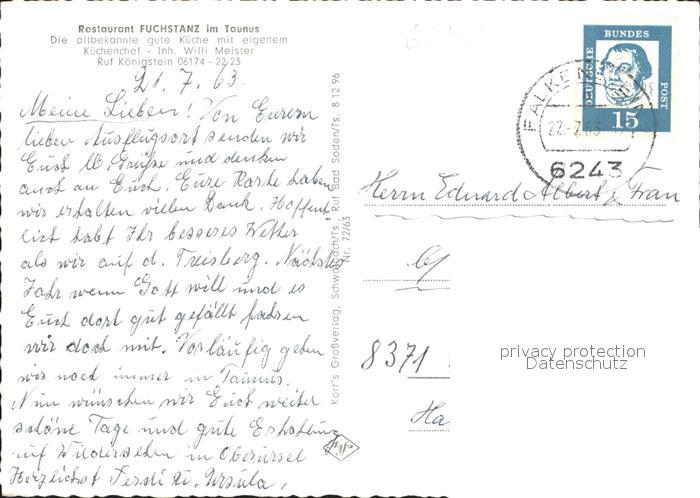 Restaurant FUCHSTANZ im Taunus
Die altbekannte gute Küche mit eigenem
Küchenchef - Inh. Willi Meister
Ruf Königstein 06174 - 22 23
21.7.63.
Meine Lieben! Von Eurem
lieben Ausflugsort senden wir
Euch lb. Grüße und denken
auch an Euch. Eure Karte haben
wir erhalten vielen Dank. Hoffent
lich habt Ihr besseres Wetter
als wir auf d. Treisberg. Nächstes
Jahr wenn Gott will und es
Euch dort gut gefällt fahren
wir doch mit. Vorläufig gehen
wir noch immer im Taunus.
Nun wünschen wir Euch weiter
schöne Tage und gute Erholung
auf Wiedersehen in Oberursel
Herzlichst Ferdi u. Ursula.
Korr's Großverlag, Schwalbach/Ts. Ruf Bad Soden/Ts. 8 12 96
Nr. 72/63
DEUTSCHE BUNDES POST
15
FALKEN
22.-7.63
6243
Herrn Eduard Albert u. Frau
8371
Ha
privacy protection
Datenschutz